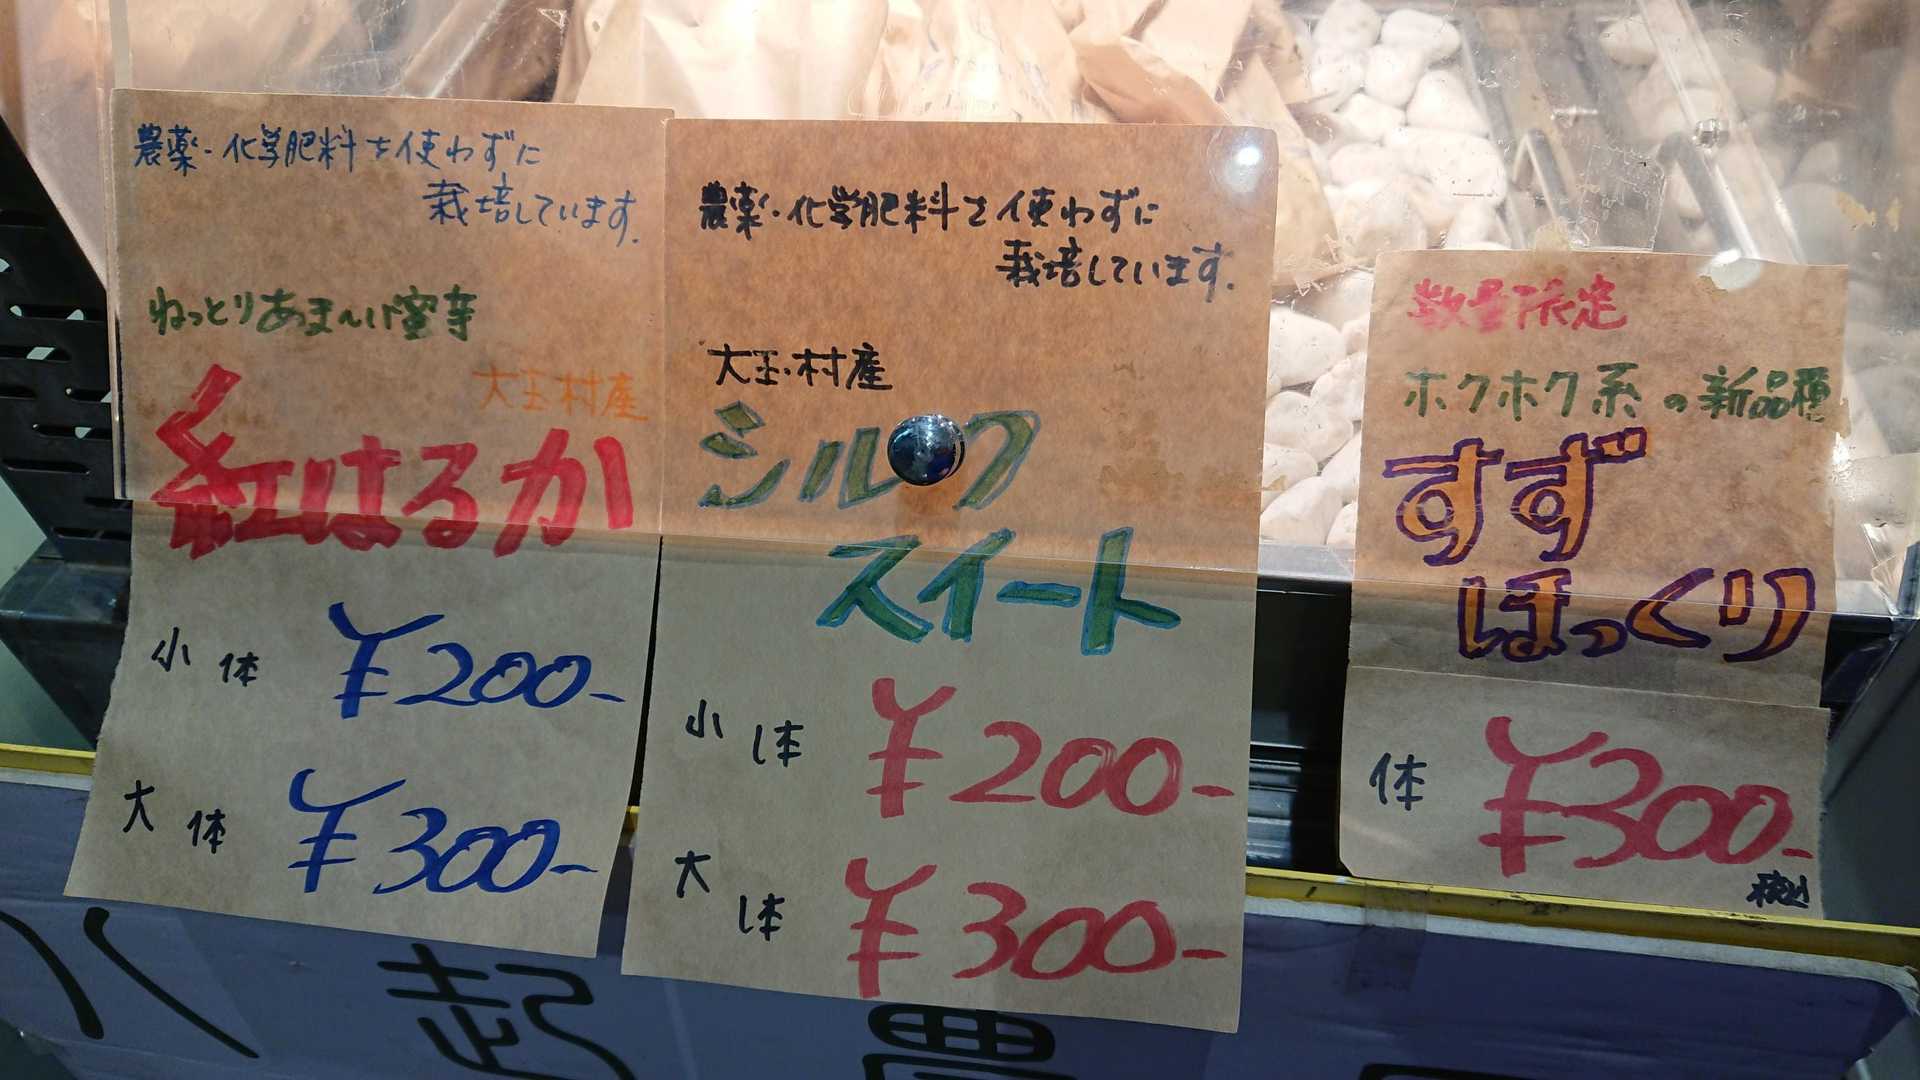 農薬・化学肥料を使わずに
栽培しています.
ねっとりあま〜い蜜芋
大玉村産
紅はるか
小 体 ¥200-
大 体 ¥300-
農薬・化学肥料を使わずに
栽培しています.
大玉村産
シルク
スイート
小 体 ¥200-
大 体 ¥300-
数量限定
ホクホク系の新品種
すず
ほっくり
体 ¥300-
税込
起